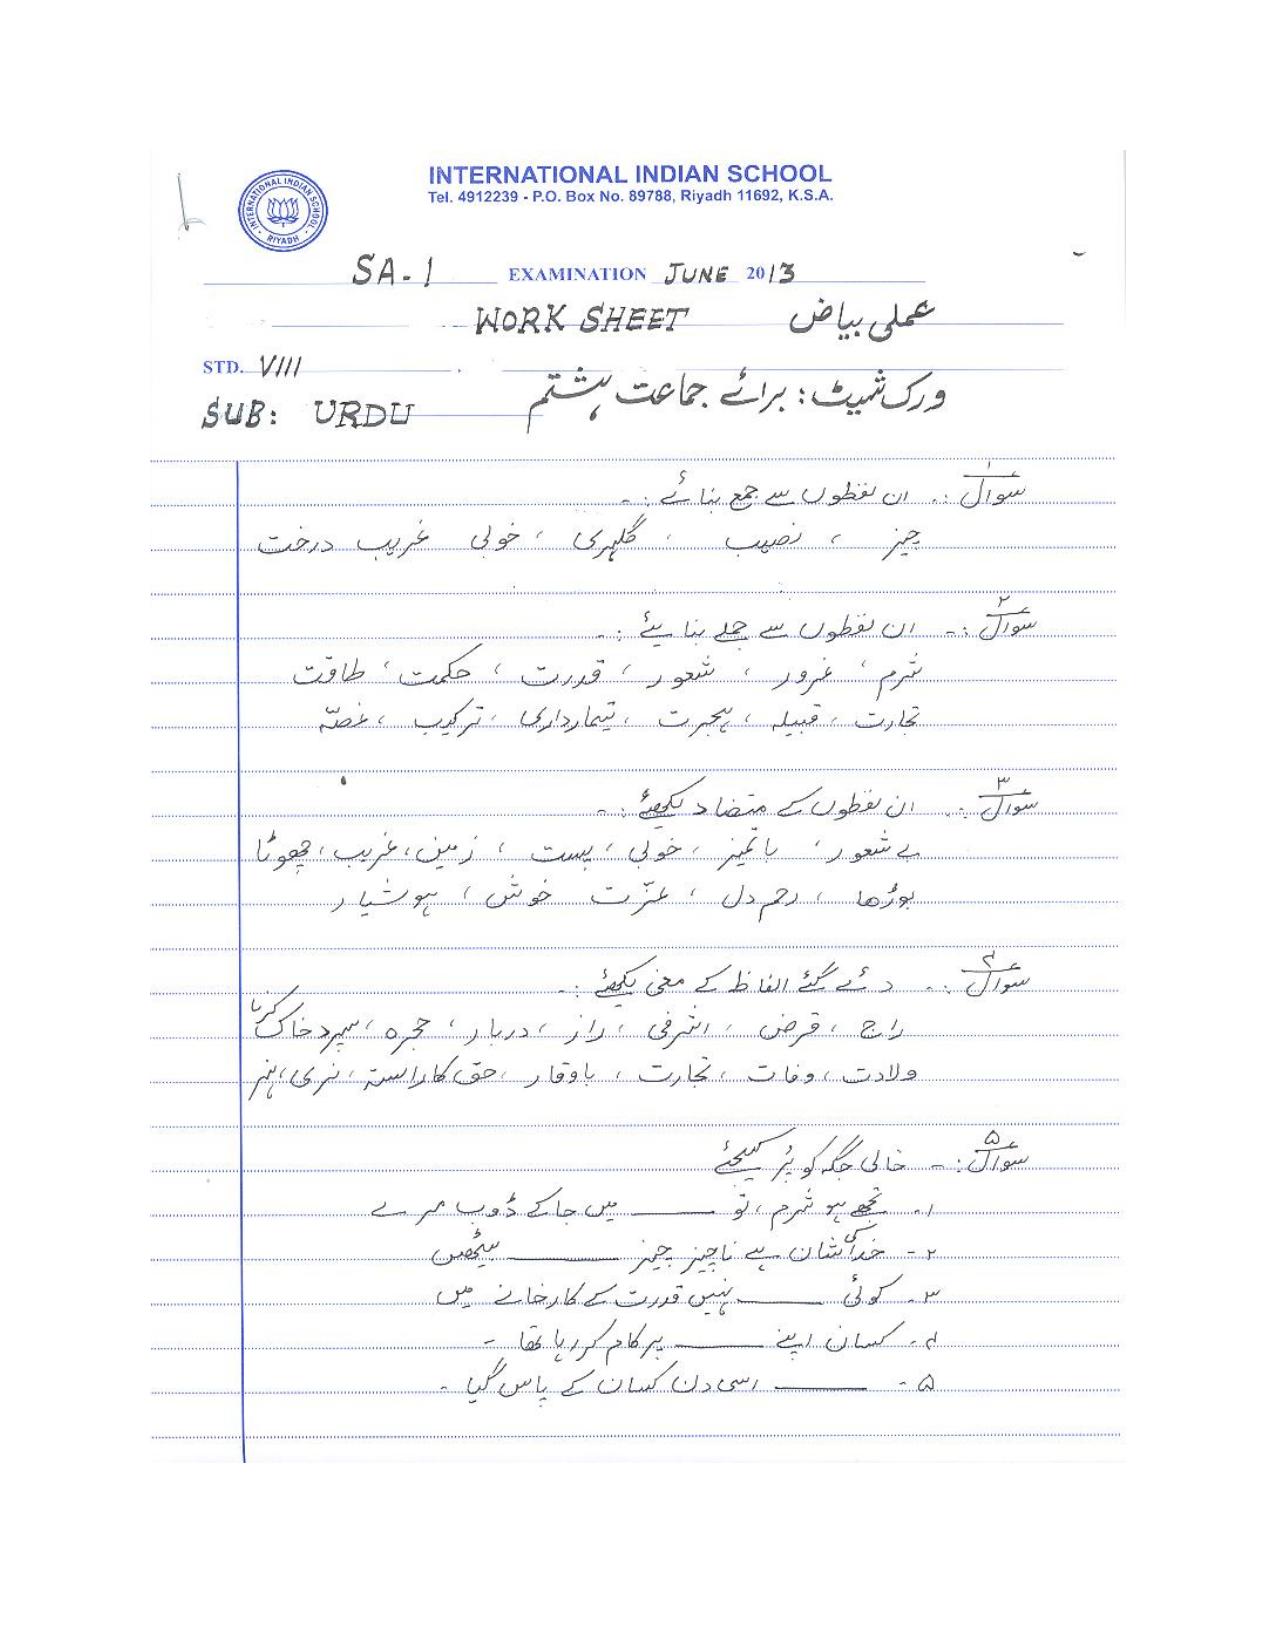 INTERNATIONAL INDIAN SCHOOL
Tel. 4912239 - P.O. Box No. 89788, Riyadh 11692, K.S.A.
INTERNATIONAL INDIAN SCHOOL
RIYADH
SA-1 EXAMINATION JUNE 2013
WORK SHEET عملی بیاض
STD. VIII
ورک شیٹ: برائے جماعت ہشتم
SUB: URDU
سوال ۱ :- ان لفظوں سے جمع بنائے :-
چیز ، نصیب ، گلہری ، خوبی غریب درخت
سوال ۲ :- ان لفظوں سے جملے بنایئے :-
شرم ، غرور ، شعور ، قدرت ، حکمت ، طاقت
تجارت ، قبیلہ ، ہجرت ، تیمارداری ، ترکیب ، غصّہ
سوال ۳ :- ان لفظوں کے متضاد لکھئے :-
بے شعور ، باتمیز ، خوبی ، پست ، زمین ، غریب ، چھوٹا
بوڑھا ، رحم دل ، عزّت خوش ، ہوشیار
سوال ۴ :- دئے گئے الفاظ کے معنی لکھئے :-
راج ، قرض ، اشرفی ، راز ، دربار ، حجرہ ، سپرد خاک کرنا
ولادت ، وفات ، تجارت ، باوقار ، حق کا راستہ ، نری ، ہنر
سوال ۵ :- خالی جگہ کو پُر کیجئے
۱- تجھے ہو شرم ، تو ـــــ میں جا کے ڈوب مرے
۲- خدا کی شان ہے ناچیز چیز ـــــ بیٹھیں
۳- کوئی ـــــ نہیں قدرت کے کارخانے میں
۴- کسان اپنے ـــــ پر کام کر رہا تھا -
۵- ـــــ اسی دن کسان کے پاس گیا -